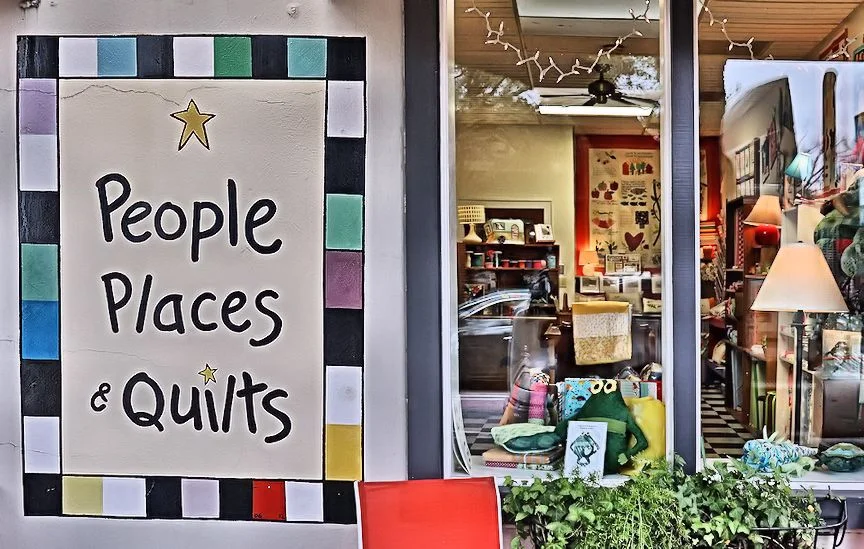 People
Places
& Quilts